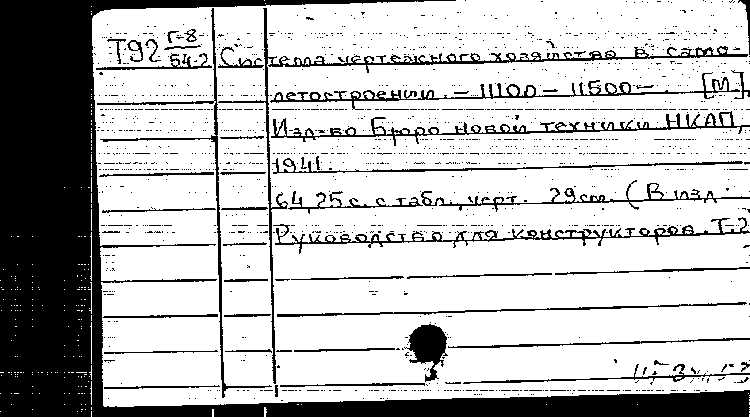 Т92 Г-8 54-2 Система чертежного хозяйства в само-
летостроении. – 11100 – 11500 –. [М.],
Изд-во Бюро новой техники НКАП,
1941.
64, 25 с. с табл., черт. 29 см. (В изд.
Руководство для конструкторов. Т.2